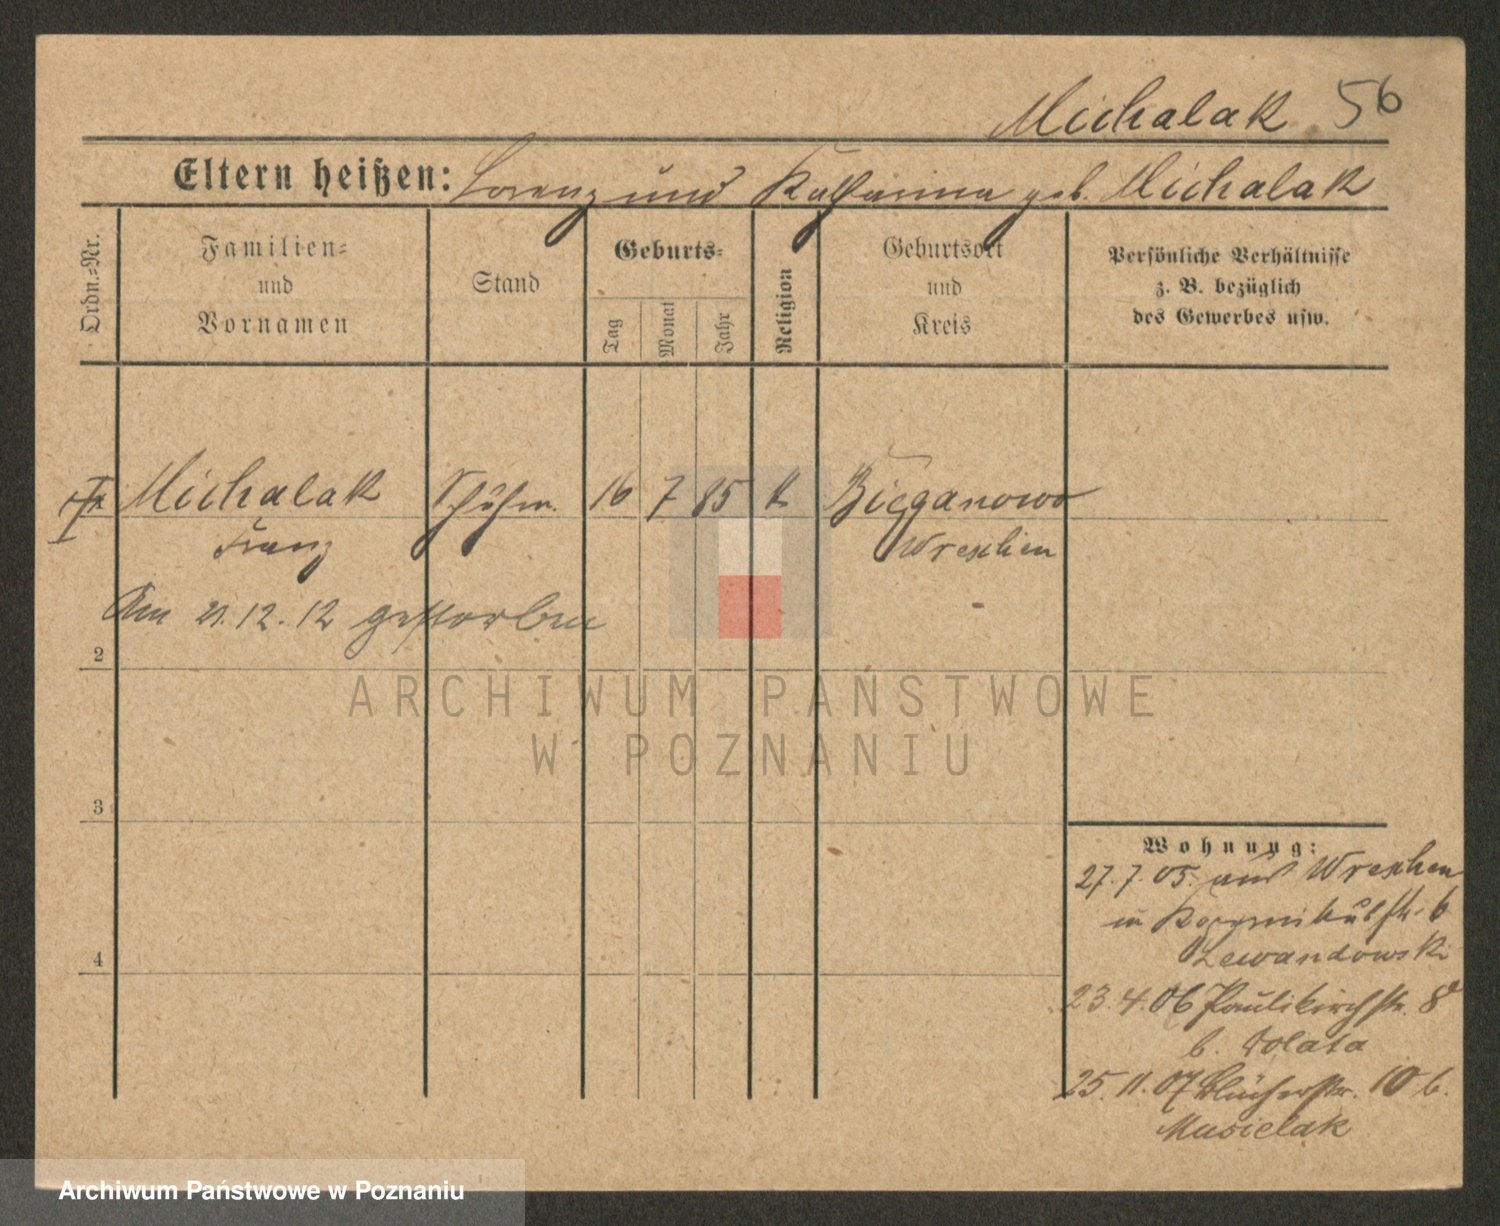 Michalak 56
Eltern heißen: Lorenz und Katharina geb. Michalak
Ordn.=Nr.
Familien=
und
Vornamen
Stand
Geburts=
Tag
Monat
Jahr
Religion
Geburtsort
und
Kreis
Persönliche Verhältnisse
z. B. bezüglich
des Gewerbes usw.
Michalak 16 7 85 k Bieganowo
Franz Wreschen
Am 21.12.12 gestorben
2
ARCHIWUM PAŃSTWOWE
W POZNANIU
3
Wohnung:
27.7.05. aus Wreschen
in 6
Lewandowski
4
23.4.06 Paulikirchstr. 8
b. Wolata
25.11.07 Blücherstr. 10 b.
Musielak
Archiwum Państwowe w Poznaniu